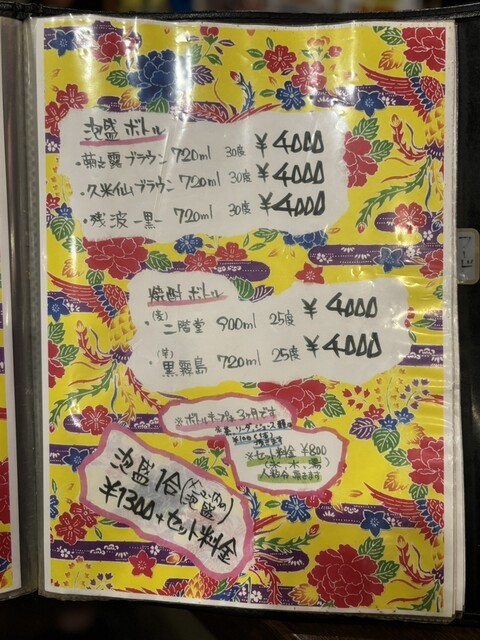 泡盛 ボトル
・菊之露ブラウン 720ml 30度 ¥4000
・久米仙ブラウン 720ml 30度 ¥4000
・残波 -黒- 720ml 30度 ¥4000
焼酎 ボトル
(麦) 二階堂 900ml 25度 ¥4000
(芋) 黒霧島 720ml 25度 ¥4000
※ボトルキープは3ヶ月です
¥100
頂きます
※セット料金 ¥800
(氷、水、湯)
人数分 頂きます
泡盛 1合
泡盛
¥1300+セット料金